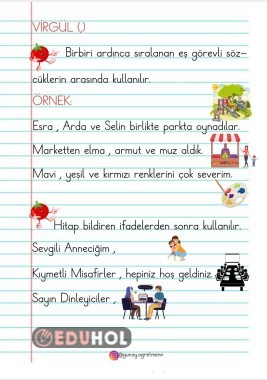 VİRGÜL (,)
Birbiri ardınca sıralanan eş görevli söz-
cüklerin arasında kullanılır.
ÖRNEK:
Esra , Arda ve Selin birlikte parkta oynadılar.
Marketten elma , armut ve muz aldık.
Mavi , yeşil ve kırmızı renklerini çok severim.
Hitap bildiren ifadelerden sonra kullanılır.
Sevgili Anneciğim ,
Kıymetli Misafirler , hepiniz hoş geldiniz.
Sayın Dinleyiciler ,
EDUHOL